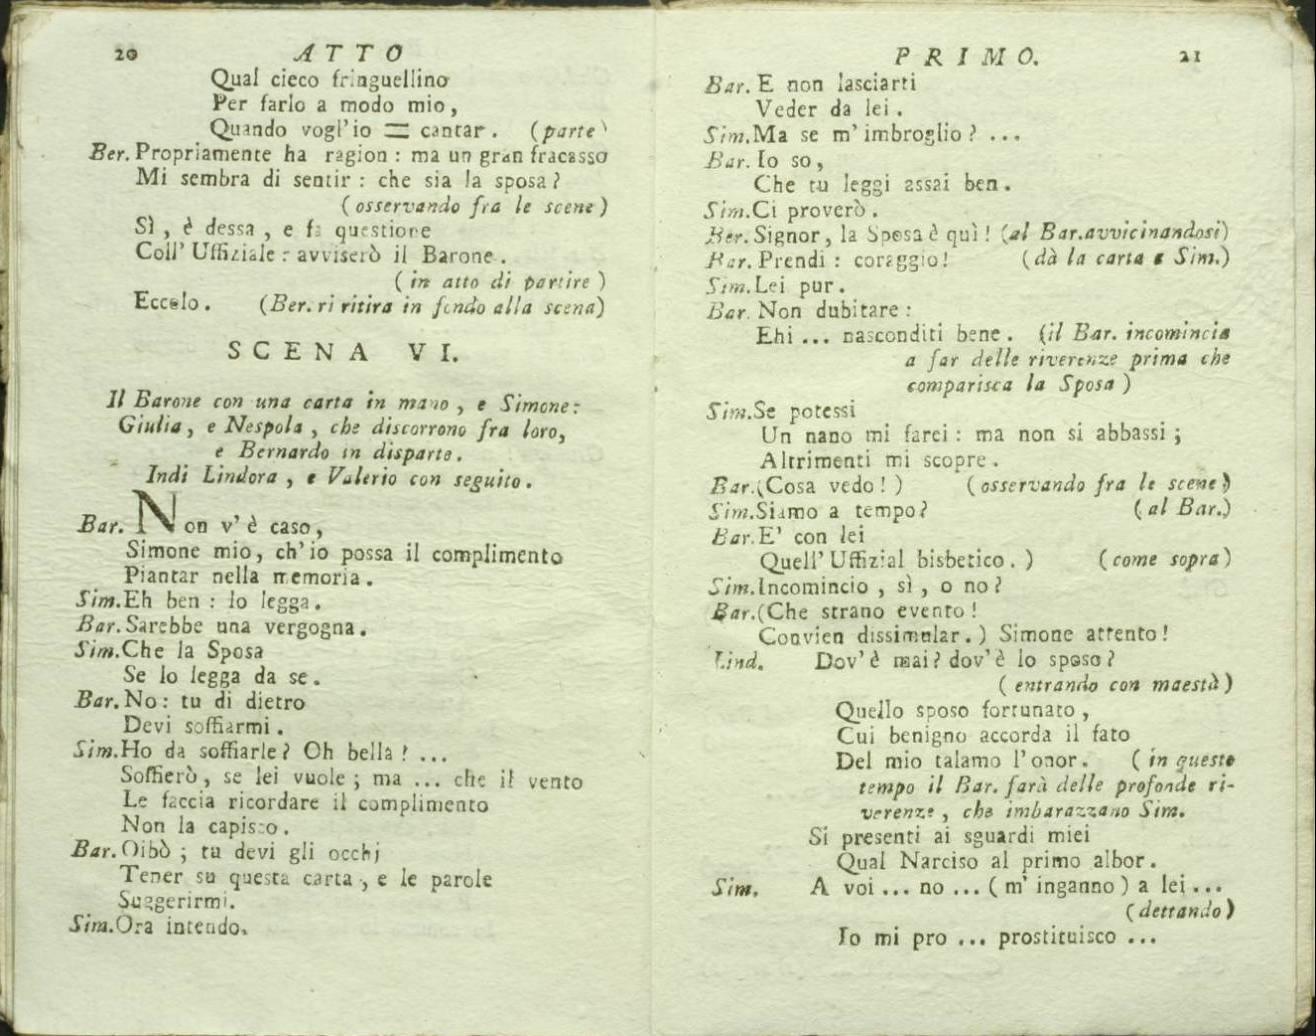 20 ATTO
Qual cieco fringuellino
Per farlo a modo mio,
Quando vogl'io = cantar. (parte)
Ber. Propriamente ha ragion: ma un gran fracasso
Mi sembra di sentir: che sia la sposa?
(osservando fra le scene)
Sì, è dessa, e fa questione
Coll' Uffiziale: avviserò il Barone.
(in atto di partire)
Eccolo. (Ber. ri ritira in fondo alla scena)
SCENA VI.
Il Barone con una carta in mano, e Simone:
Giulia, e Nespola, che discorrono fra loro,
e Bernardo in disparte.
Indi Lindora, e Valerio con seguito.
Bar. Non v'è caso,
Simone mio, ch'io possa il complimento
Piantar nella memoria.
Sim. Eh ben: lo legga.
Bar. Sarebbe una vergogna.
Sim. Che la Sposa
Se lo legga da se.
Bar. No: tu di dietro
Devi soffiarmi.
Sim. Ho da soffiarle? Oh bella! ...
Soffierò, se lei vuole; ma ... che il vento
Le faccia ricordare il complimento
Non la capisco.
Bar. Oibò; tu devi gli occhj
Tener su questa carta, e le parole
Suggerirmi.
Sim. Ora intendo.
PRIMO. 21
Bar. E non lasciarti
Veder da lei.
Sim. Ma se m'imbroglio? ...
Bar. Io so,
Che tu leggi assai ben.
Sim. Ci proverò.
Ber. Signor, la Sposa è quì! (al Bar. avvicinandosi)
Bar. Prendi: coraggio! (dà la carta a Sim.)
Sim. Lei pur.
Bar. Non dubitare:
Ehi ... nasconditi bene. (il Bar. incomincia
a far delle riverenze prima che
comparisca la Sposa)
Sim. Se potessi
Un nano mi farei: ma non si abbassi;
Altrimenti mi scopre.
Bar. (Cosa vedo!) (osservando fra le scene)
Sim. Siamo a tempo? (al Bar.)
Bar. E' con lei
Quell' Uffizial bisbetico.) (come sopra)
Sim. Incomincio, sì, o no?
Bar. (Che strano evento!
Convien dissimular.) Simone attento!
Lind. Dov'è mai? dov'è lo sposo?
(entrando con maestà)
Quello sposo fortunato,
Cui benigno accorda il fato
Del mio talamo l'onor. (in questo
tempo il Bar. farà delle profonde ri-
verenze, che imbarazzano Sim.
Si presenti ai sguardi miei
Qual Narciso al primo albor.
Sim. A voi ... no ... (m'inganno) a lei ...
(dettando)
Io mi pro ... prostituisco ...